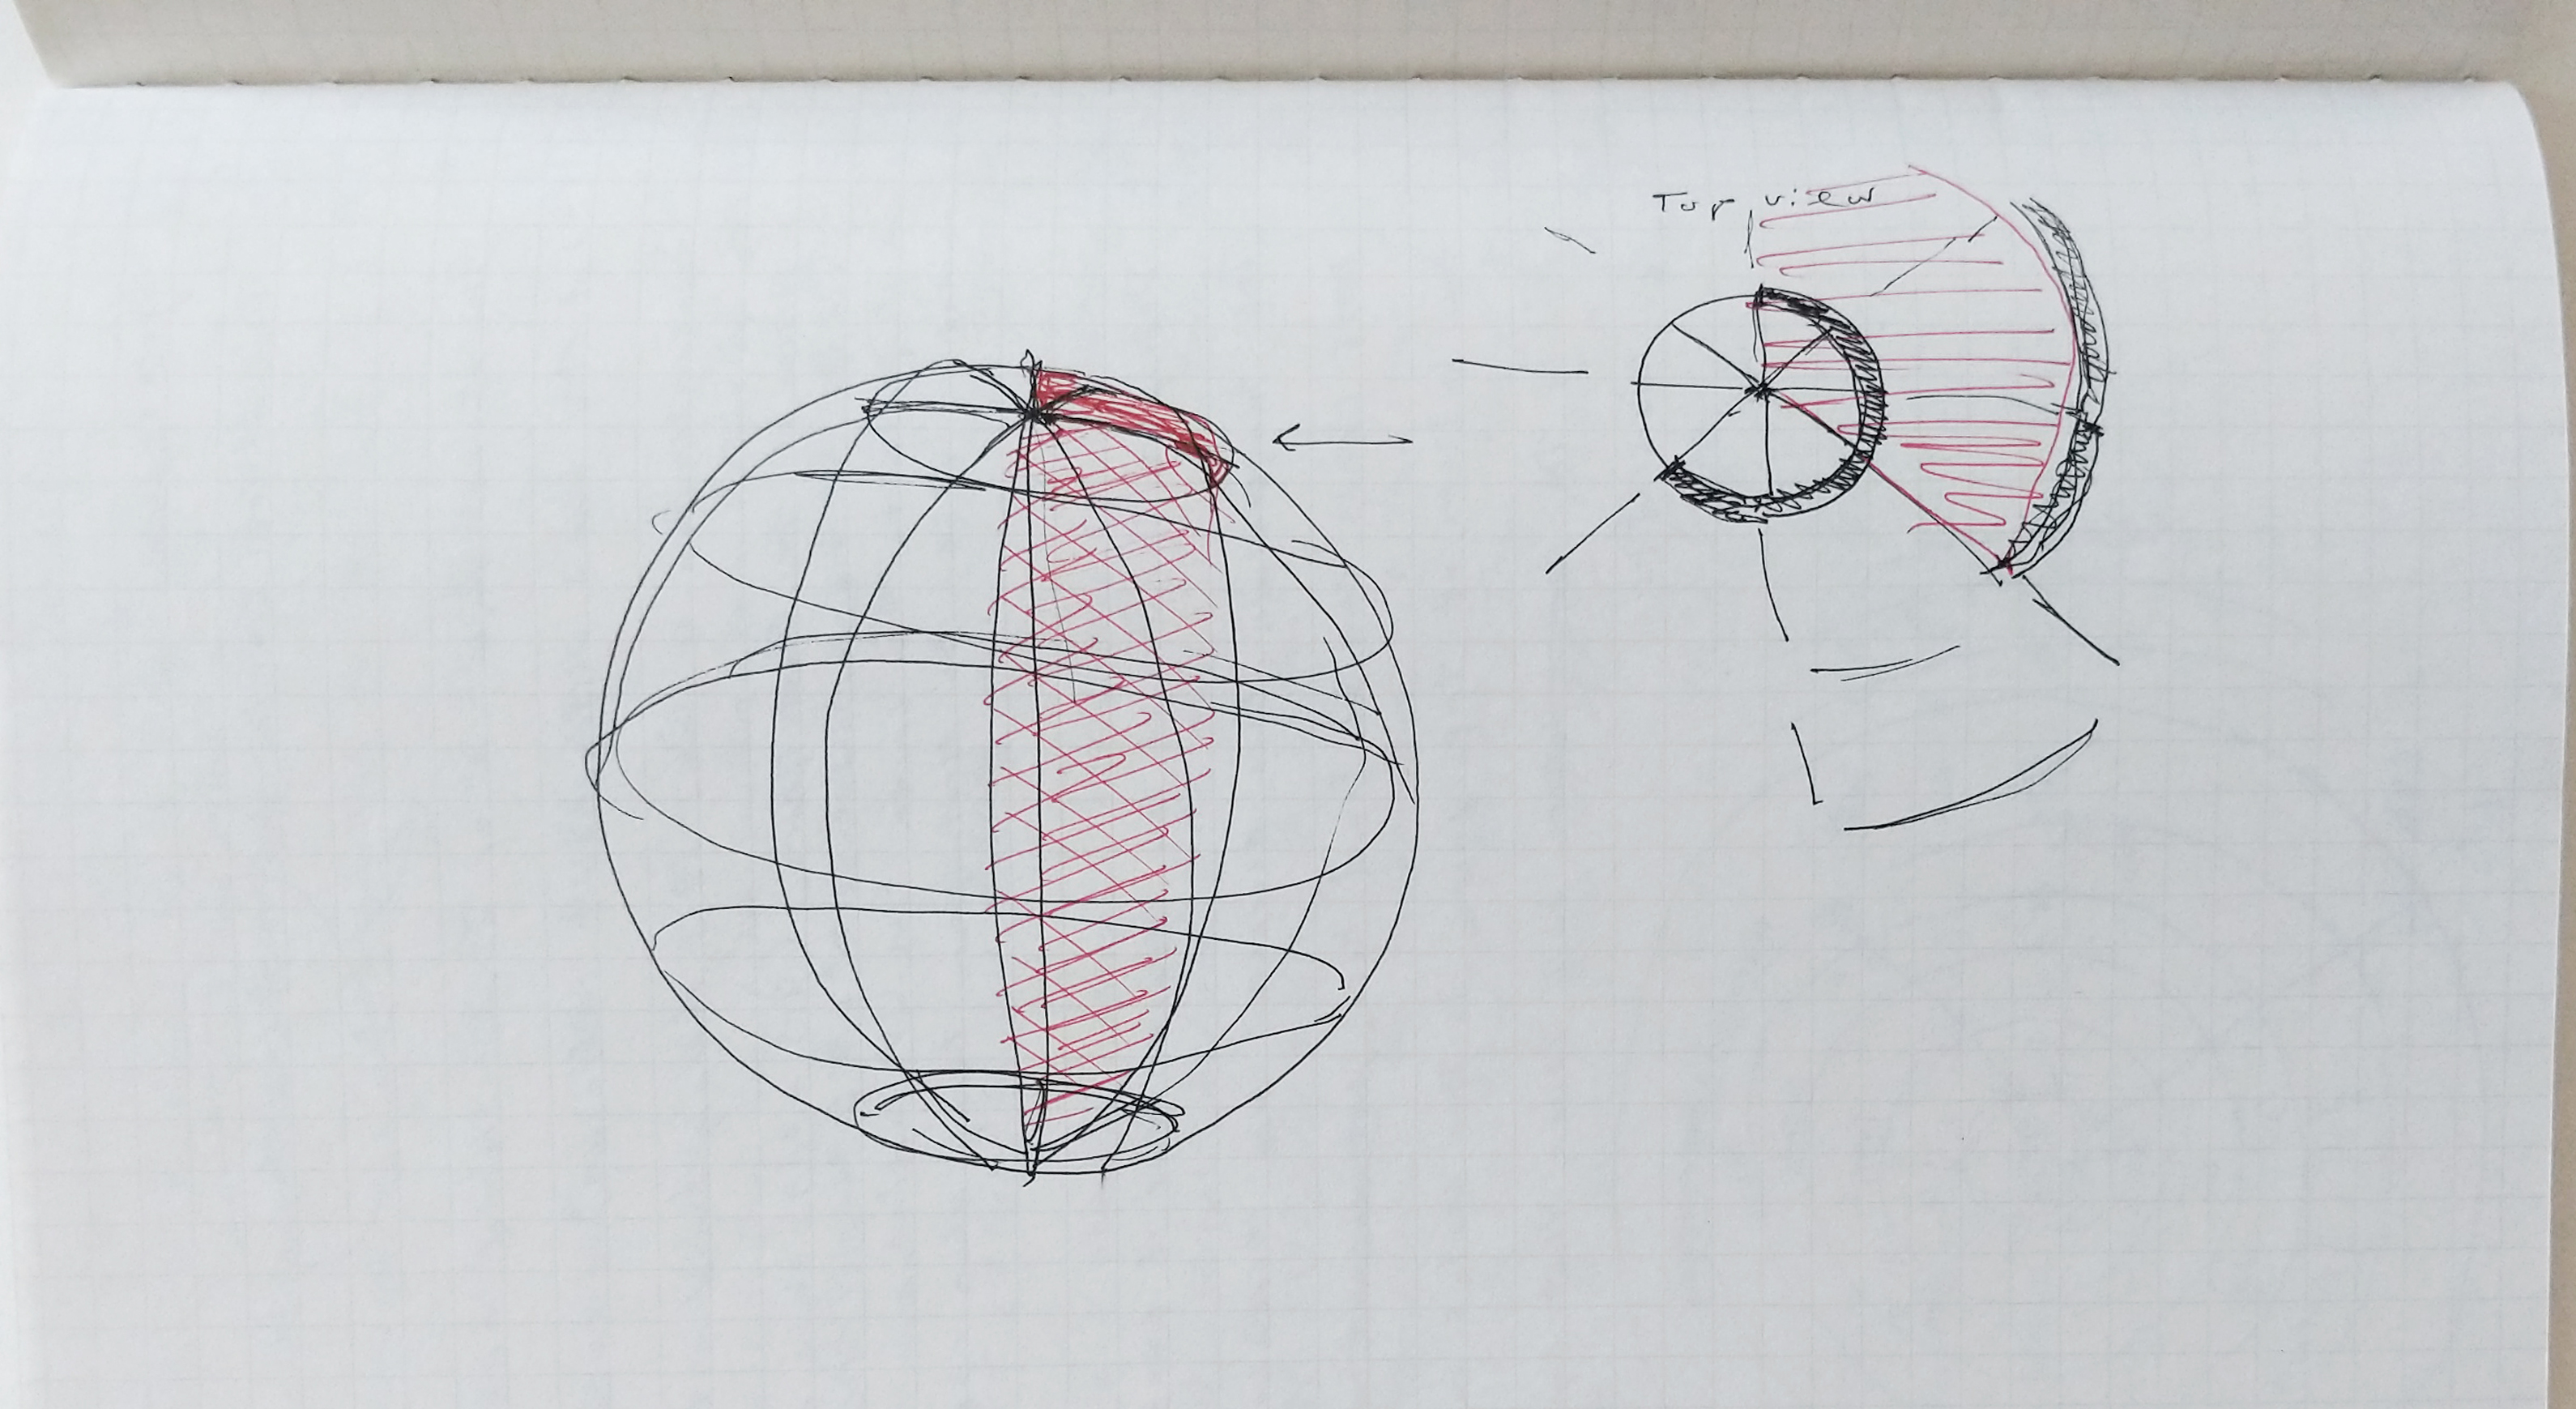 Top view